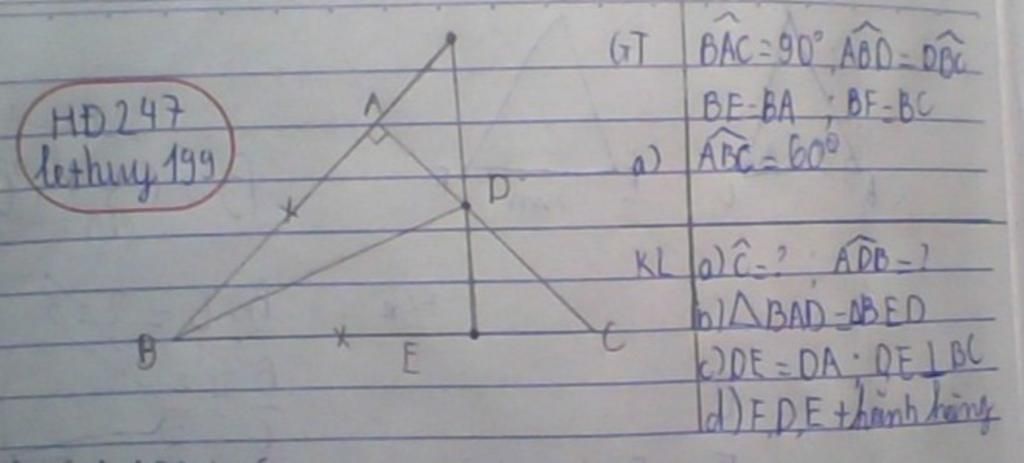 HĐ247
lethuy199
A
D
B
E
C
GT BAC = 90°, ABD = DBC
BE = BA ; BF = BC
a) ABC = 60°
KL a) C = ? ADB = ?
b) △BAD = △BED
c) DE = DA ; DE ⊥ BC
d) F, D, E thẳnh hàng